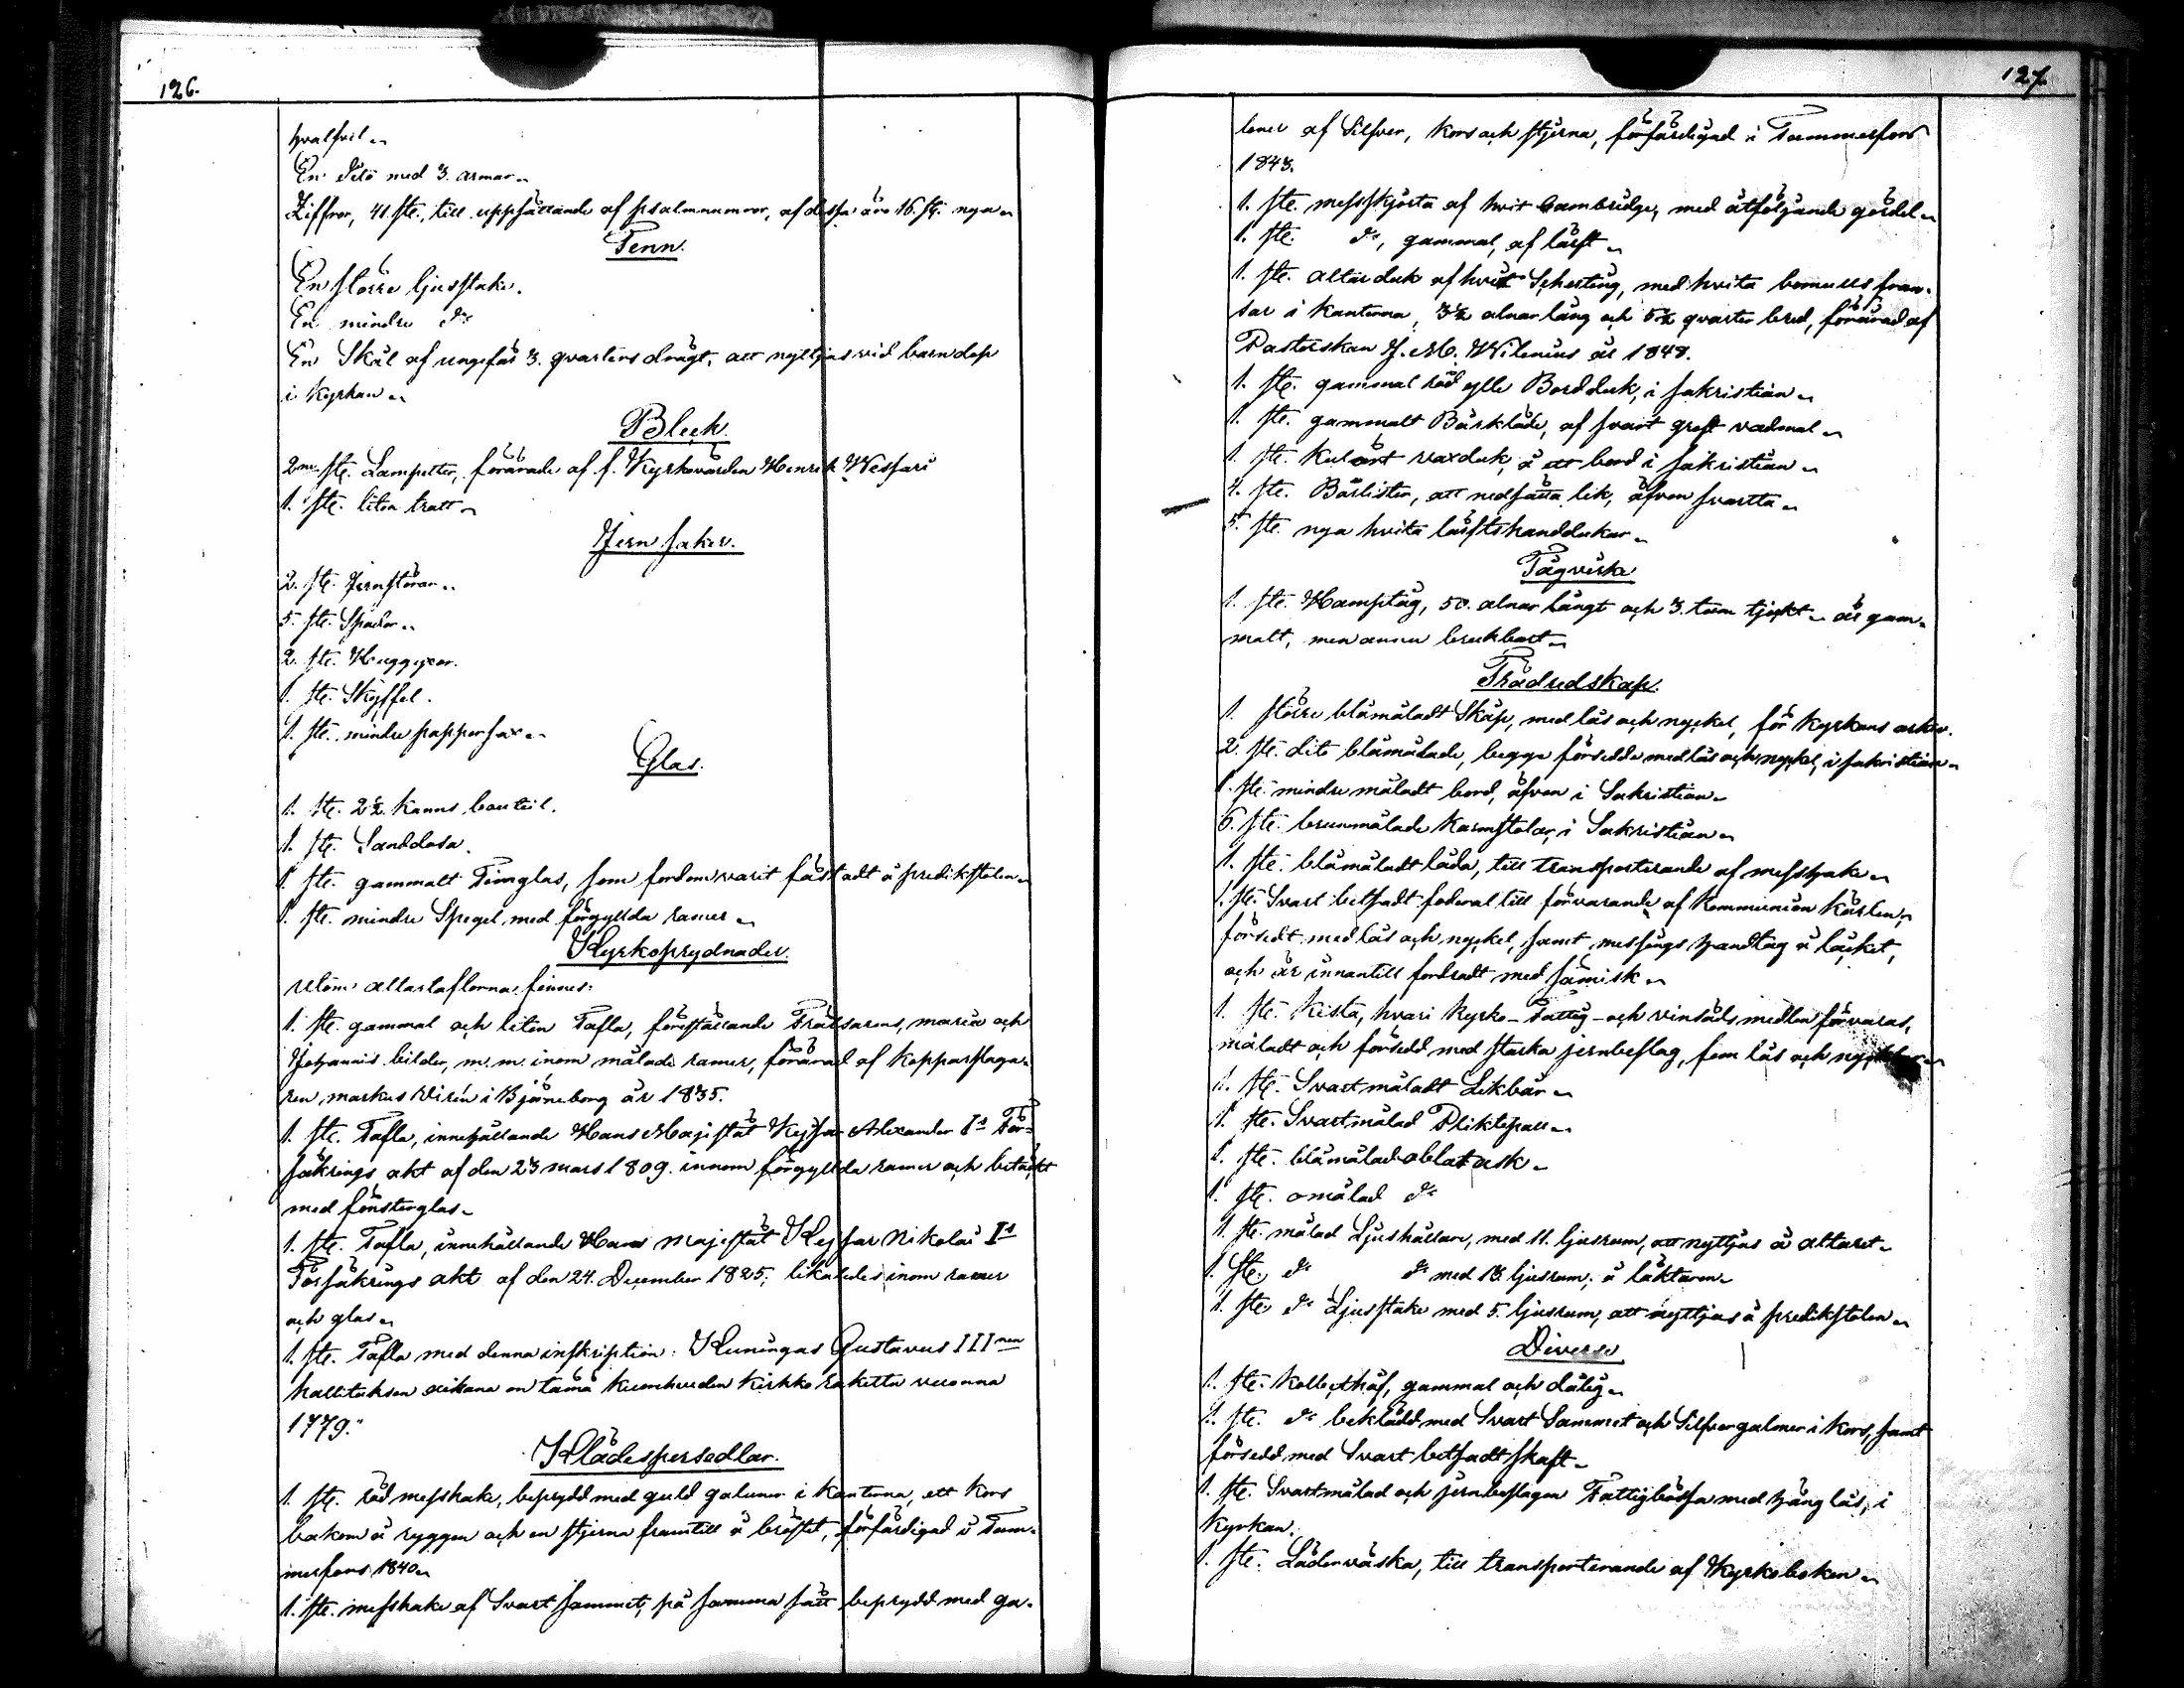 126.
hvalfvel
En Dito med 3. armar
Ziffror, 41. ste., till uppsättande af psalmnumror, af dessa äro 16. st. nya
Tenn.
En större ljusstake.
En mindre do
En Skål af ungefär 3. qvarters drägt, att nyttjas vid barndop
i Kyrkan
Bleck.
2ne ste. Lampetter, förärade af f. Kyrkovärden Henrik Wessari
1. ste. liten tratt
Jern saker.
2. ste. Jernstörar
5. ste. Spador
2. ste. Huggyxor.
1. ste. Skyffel.
1. ste. mindre papperssax
Glas.
1. ste. 2½ Kanns bouteil.
1. ste. Sanddosa.
1. ste. gammalt Timglas, som fordom varit fästadt å predikstolen
1. ste. mindre Spegel med förgyllda ramer
Kyrkoprydnader.
utom altartaflorna finnes:
1. ste. gammal och liten Tafla, föreställande Frälsarens, Mariæ och
Johannis bilder, m. m. inom målade ramer, förärad af kopparslaga-
ren Markus Virén i Björneborg år 1835.
1. ste. Tafla, innehållande Hans Majestät Kejsar Alexander Is För-
säkrings akt af den 23 mars 1809. innom förgyllda ramer och betäckt
med fönsterglas
1. ste. Tafla, innehållande Hans Majestät Kejsar Nikolai Is
Försäkrings akt af den 24. December 1825; likaledes inom ramer
och glas
1. ste. Tafla med denna inskription: Kuningas Gustavus IIInen
hallituksen aikana on tämä Kiwihuiden Kirkko raketta vuonna
1779."
Klädespersedlar.
1. ste. röd messhake, beprydd med guld galuner i kanterna, ett Kors
bakom å ryggen och en stjerna framtill å bröstet, förfärdigad i Tam-
merfors 1840
1. ste. messhake af Svart Sammet, på samma sätt beprydd med ga-
127.
luner af Silfver, Kors och stjerna, förfärdigad i Tammerfors
1843.
1. ste. messskjorta af hvit Cambridge, med åtföljande gördel
1. ste. do, gammal, af lärft
1. ste. altarduk af hvit Scherting, med hvita bomulls fran-
sar i kanterna, 3½ alnar lång och 5½ qvarter bred, förärad af
Pastorskan J. M. Wilenius år 1848.
1. ste. gammal röd ylle Bordduk, i sakristian
1. ste. gammalt Bårkläde, af svart groft vadmal
1. ste. kulört vaxduk, å ett bord i sakristian
4. ste. Bårlister, att nedsätta lik, äfven svarta
5. ste. nya hvita lärftshanddukar
Tågvirke
1. ste. Hamptåg, 50. alnar långt och 3. tum tjockt är gam-
malt, men annu brukbart
Trädredskap.
1. större blåmåladt Skåp, med lås och nyckel, för Kyrkans arkiv.
2. ste. dito blåmålade, begge försedde med lås och nyckel, i sakristian
1. ste. mindre måladt bord, äfven i Sakristian
6. ste. brunmålade Karmstolar, i Sakristian
1. ste. blåmåladt låda, till transporterande af messhake
1. ste. Svart betsadt foderal till förvarande af Kommunion Kärlen,
försedt med lås och nyckel, samt messings handtag å locket,
och är innantill fordradt med sämisk
1. ste. Kista, hvari Kyrko- Fattig- och vinsäds medlen förvaras,
måladt och försedd med starka jernbeslag, fem lås och nycklar
1. ste. Svartmåladt Likbår
1. ste. Svartmålad Pliktepall
1. ste. blåmålad oblatask
1. ste. omålad do
1. ste. målad Ljushållare, med 11. ljusrum, att nyttjas å altaret
1. ste. do do med 13. ljusrum, å läktaren
1. ste. do Ljusstake med 5. ljusrum, att nyttjas å predikstolen
Diverse
1. ste. Kollecthåf, gammal och dålig
1. ste. do beklädd med Svart Sammet och Silfvergaloner i Kors, samt
försedd med Svart betsadt skaft
1. ste. Svartmålad och jernbeslagen Fattigbössa med hänglås, i
Kyrkan.
1. ste. Läderväska, till transporterande af Kyrkoboken